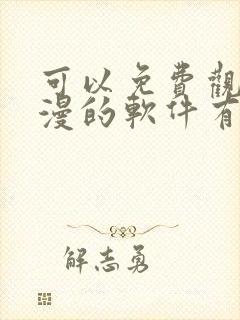 可以免費觀
漫的軟件有
解志勇